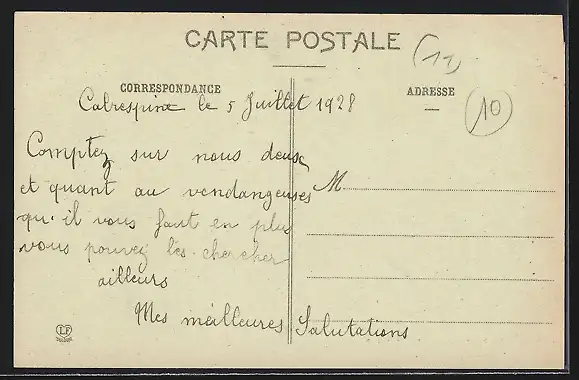 CARTE POSTALE
(11)
CORRESPONDANCE
ADRESSE
(10)
Cabrespine le 5 Juillet 1928
Comptez sur nous deux
et quant au vendangeuses
qu'il vous faut en plus
vous pouvez les chercher
ailleurs
Mes meilleures Salutations
M
LF